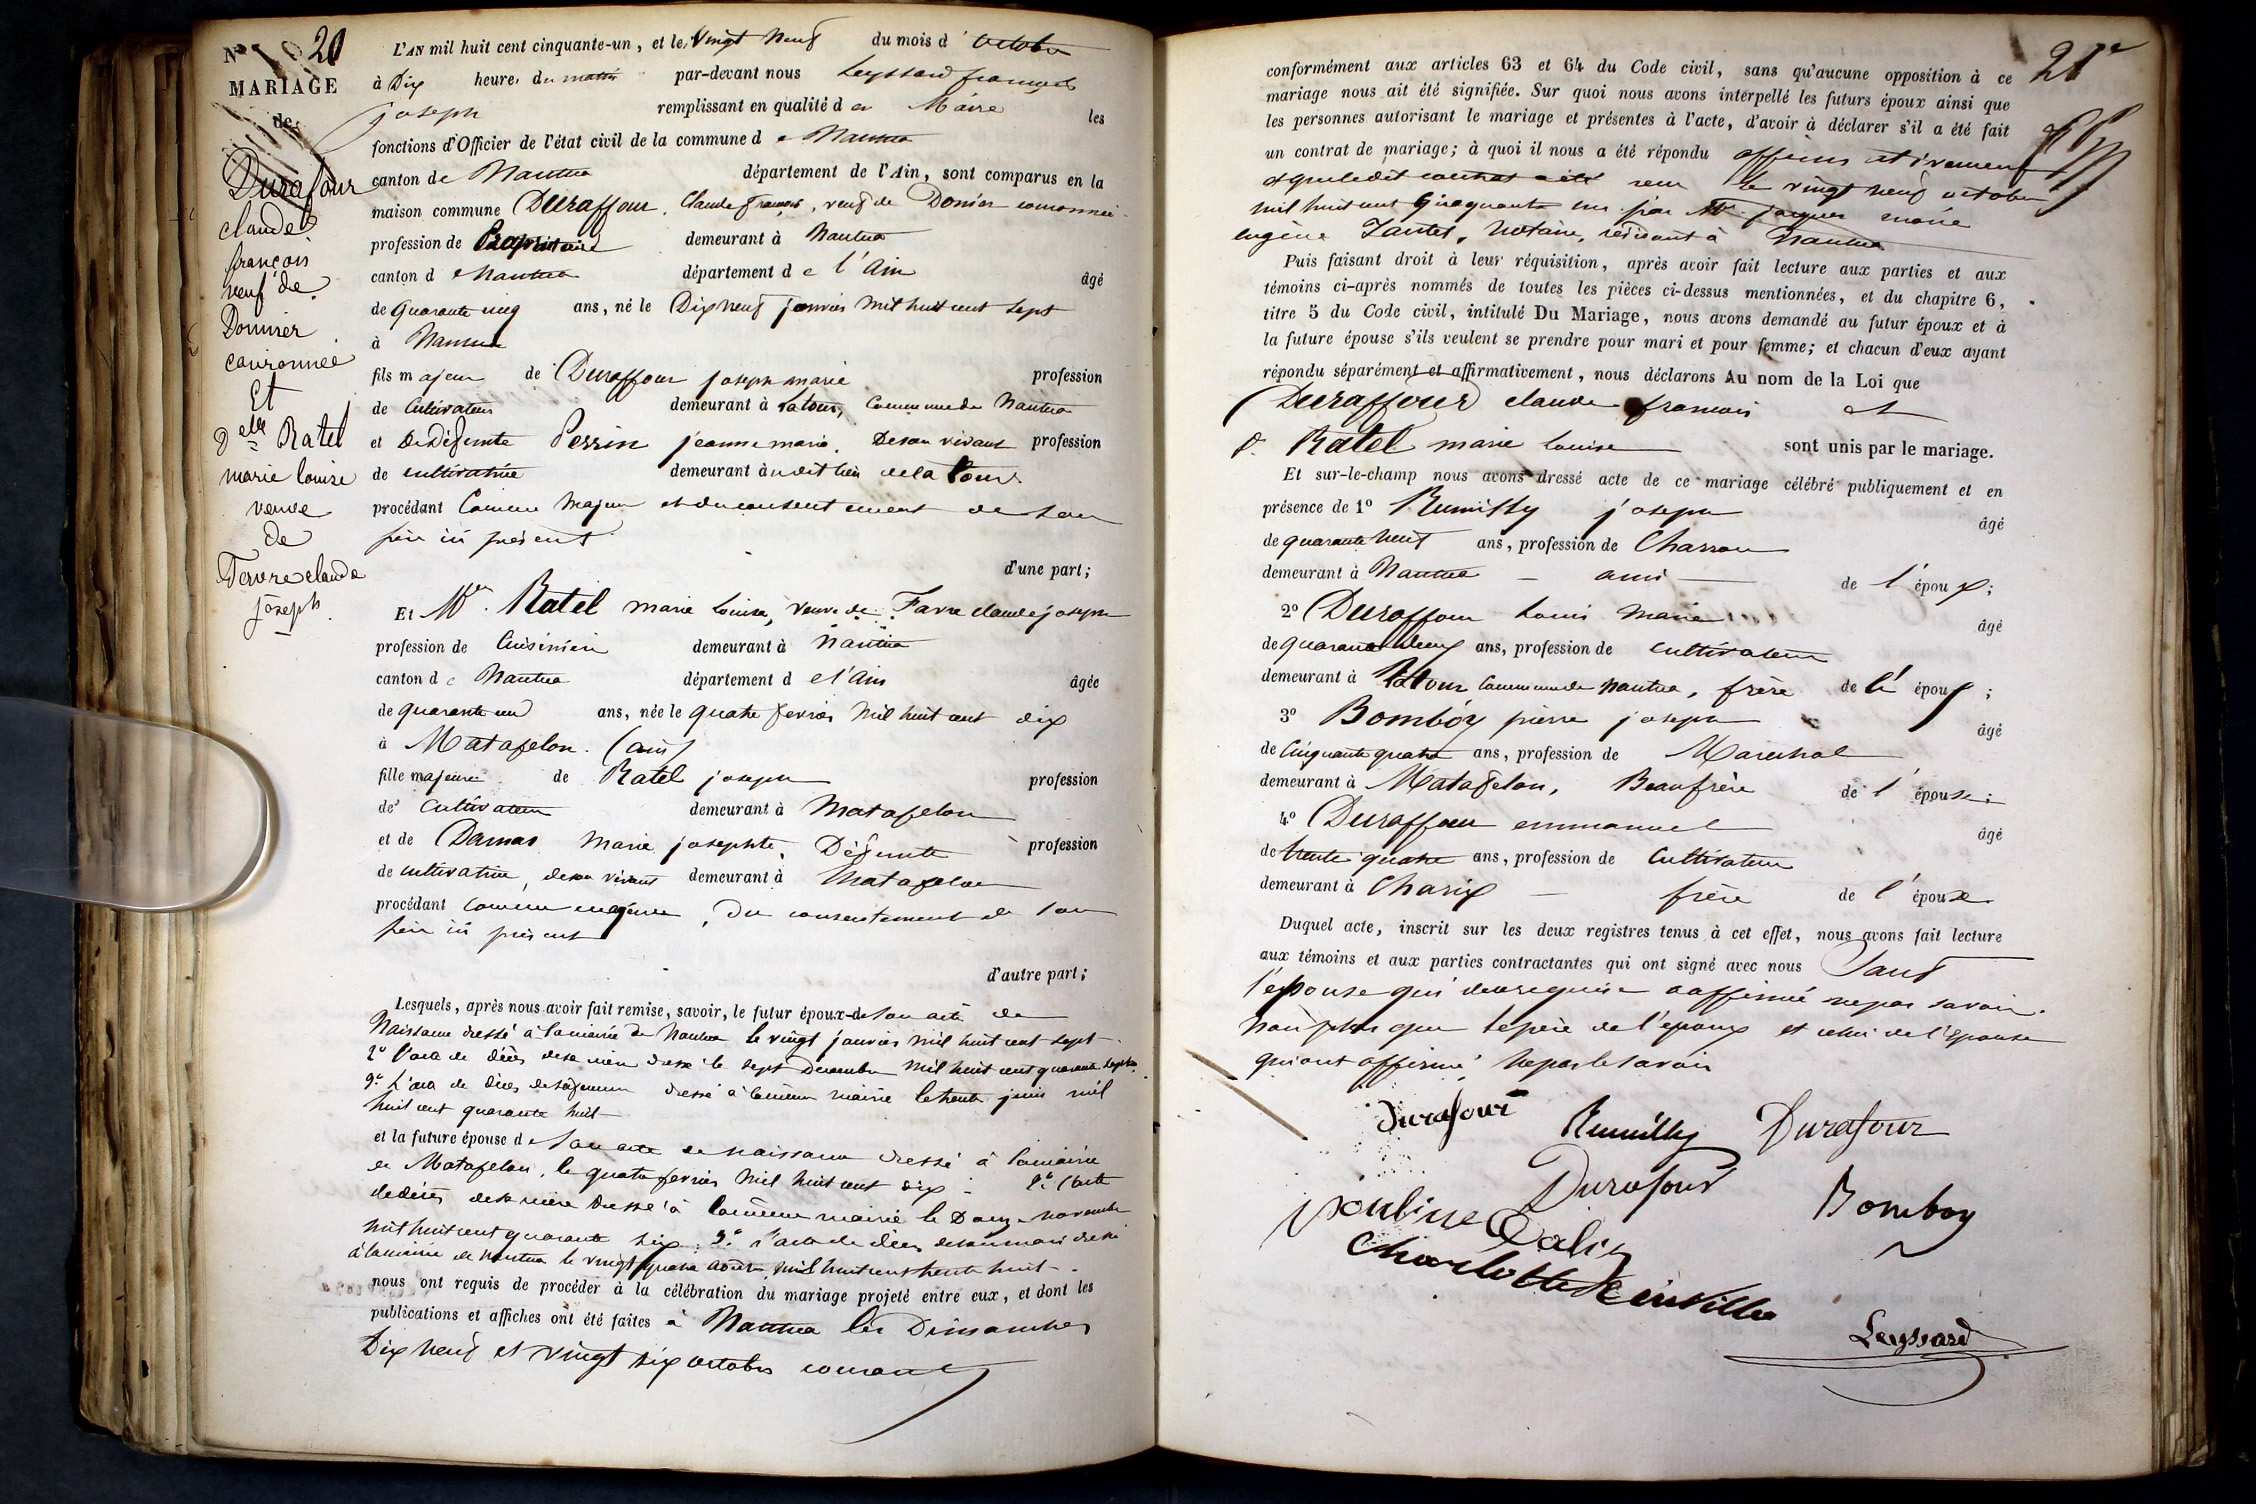 N° 20
MARIAGE
de
Durafour
claude
françois
veuf de
Donnier
couronnée
Et
Delle Ratel
marie louise
veuve
de
Favre claude
joseph
L'AN mil huit cent cinquante-un, et le vingt neuf du mois d'octobre
à Dix heures du matin par-devant nous Leyssard françois
joseph remplissant en qualité de Maire les
fonctions d'Officier de l'état civil de la commune de Nantua
canton de Nantua département de l'Ain, sont comparus en la
maison commune Duraffour, Claude françois, veuf de Donier couronnée
profession de Propriétaire demeurant à Nantua
canton de Nantua département de l'Ain âgé
de quarante cinq ans, né le Dix neuf janvier mil huit cent sept
à Nantua
fils majeur de Duraffour joseph marie profession
de Cultivateur demeurant à Latour, Commune de Nantua
et de Défunte Perrin jeanne marie De son vivant profession
de cultivatrice demeurant au dit lieu de la Tour
procédant Comme Majeur et du consentement de son
père ici présent
d'une part;
Et Me Ratel marie louise, veuve de Favre claude joseph
profession de Cuisinière demeurant à Nantua
canton de Nantua département de l'Ain âgée
de quarante un ans, née le quatre fevrier Mil huit cent dix
à Matafelon (ain)
fille majeure de Ratel joseph profession
de Cultivateur demeurant à Matafelon
et de Damas Marie josephte, Défunte profession
de cultivatrice, de son vivant demeurant à Matafelon
procédant comme majeure, Du consentement de son
père ici présent
d'autre part;
Lesquels, après nous avoir fait remise, savoir, le futur époux de Son acte de
Naissance dressé à la mairie de Nantua le vingt janvier mil huit cent sept
2° l'acte de décès de sa mère dressé le sept Decembre Mil huit cent quarante sept
3° L'acte de décès de sa femme dressé à la même mairie le trente juin mil
huit cent quarante huit
et la future épouse de Son acte de naissance dressé à la mairie
de Matafelon, le quatre fevrier Mil huit cent dix 2° l'acte
de décès de sa mère Dressé à la même mairie le Douze novembre
mil huit cent quarante six 3° l'acte de décès de son mari dressé
à la mairie de Nantua le vingt quatre août, mil huit cent trente huit
nous ont requis de procéder à la célébration du mariage projeté entre eux, et dont les
publications et affiches ont été faites à Nantua les Dimanches
Dix Neuf et vingt six octobre courant
21
conformément aux articles 63 et 64 du Code civil, sans qu'aucune opposition à ce
mariage nous ait été signifiée. Sur quoi nous avons interpellé les futurs époux ainsi que
les personnes autorisant le mariage et présentes à l'acte, d'avoir à déclarer s'il a été fait
un contrat de mariage; à quoi il nous a été répondu affirmativement
et que le dit contrat a été reçu le vingt neuf octobre
mil huit cent cinquante un par Me jacques marie
eugène Jantet, Notaire, résidant à Nantua
Puis faisant droit à leur réquisition, après avoir fait lecture aux parties et aux
témoins ci-après nommés de toutes les pièces ci-dessus mentionnées, et du chapitre 6,
titre 5 du Code civil, intitulé Du Mariage, nous avons demandé au futur époux et à
la future épouse s'ils veulent se prendre pour mari et pour femme; et chacun d'eux ayant
répondu séparément et affirmativement, nous déclarons Au nom de la Loi que
Duraffour claude francois et
Ratel marie louise sont unis par le mariage.
Et sur-le-champ nous avons dressé acte de ce mariage célébré publiquement et en
présence de 1° Rumilly joseph âgé
de quarante huit ans, profession de Charron
demeurant à Nantua ami de l'époux;
2° Duraffour Louis Marie âgé
de quarante deux ans, profession de cultivateur
demeurant à Latour Commune de Nantua, frère de l'époux;
3° Bomboy pierre joseph âgé
de Cinquante quatre ans, profession de Maréchal
demeurant à Matafelon, Beaufrère de l'épouse;
4° Duraffour emmanuel âgé
de trente quatre ans, profession de Cultivateur
demeurant à Charix frère de l'époux
Duquel acte, inscrit sur les deux registres tenus à cet effet, nous avons fait lecture
aux témoins et aux parties contractantes qui ont signé avec nous Sauf
l'épouse qui de ce requise a affirmé ne pas savoir
non plus que le père de l'époux et celui de l'épouse
qui ont affirmé Ne pas le savoir
Durafour Rumilly Durafour
Durafour Bomboy
Charlotte Reinville
Leyssard